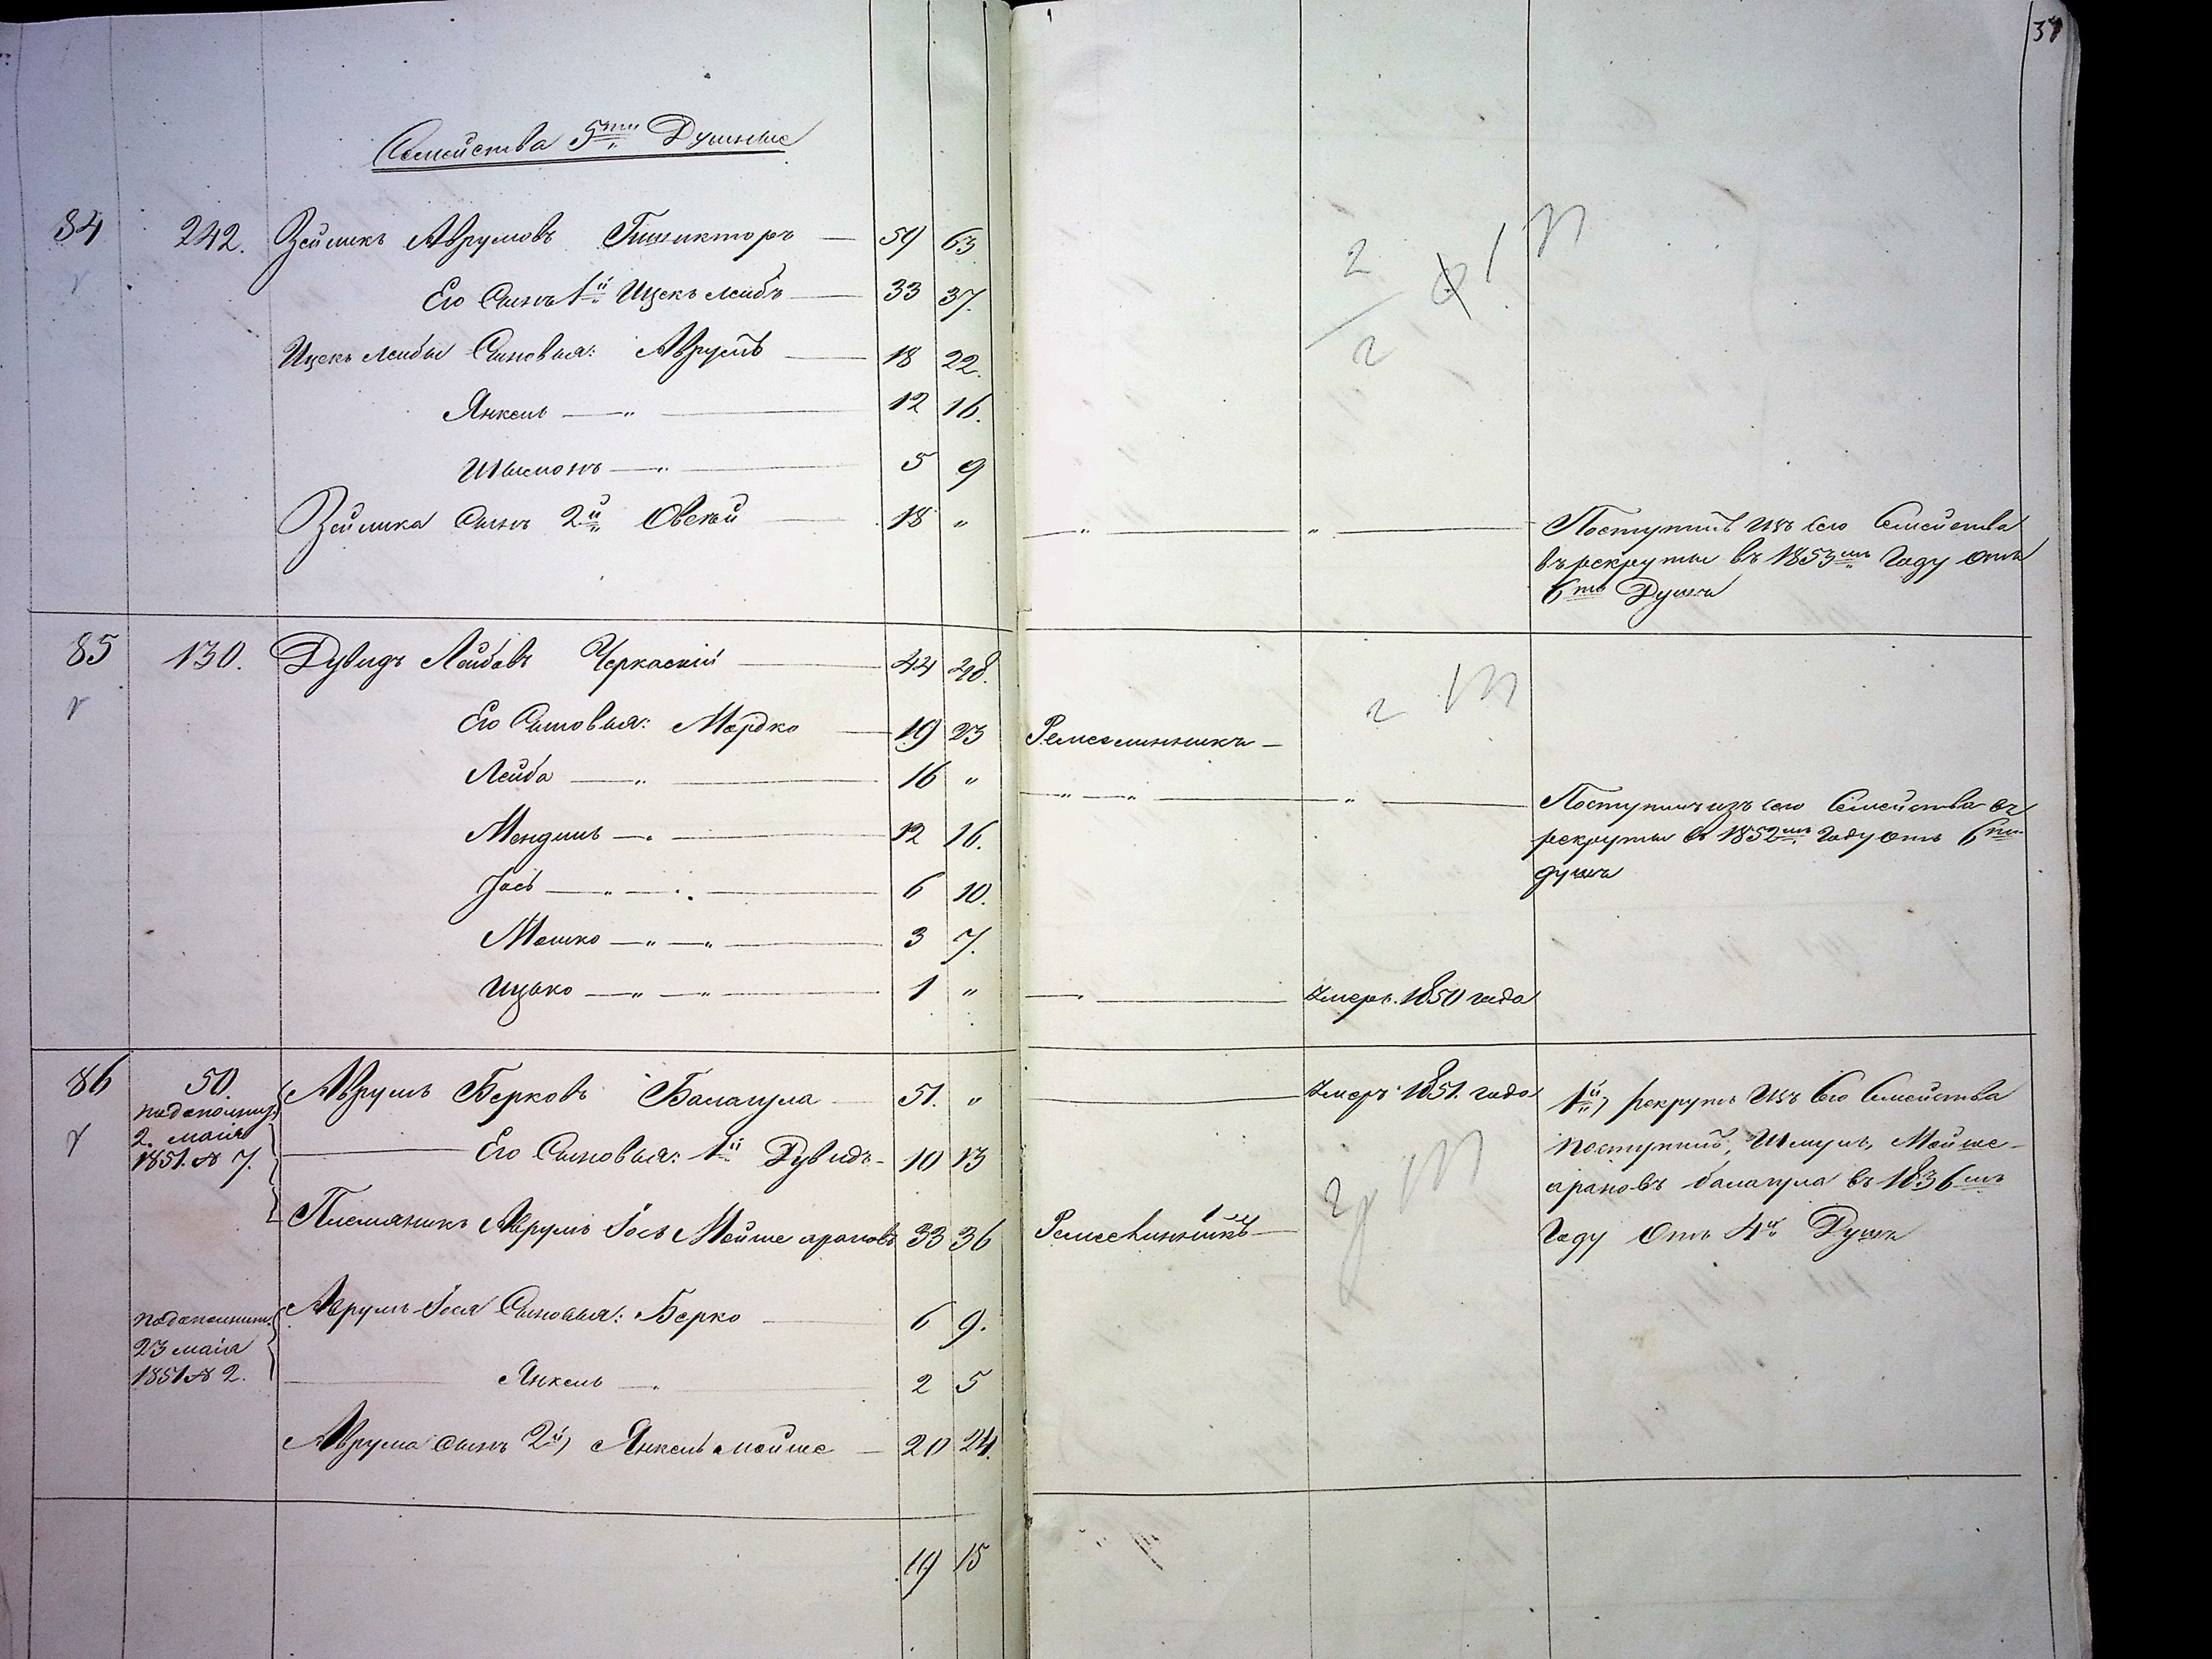 37
Семейства 5ти Душные
84 242. Зейликъ Аврумовъ — 59 63
Его Сынъ 1й Ицекъ Лейбъ — 33 37.
Ицекъ Лейбы Сыновья: Аврумъ — 18 22.
Янкель — " — 12 16.
Шлемонъ — " — 5 9
Зейлика Сынъ 2й Овсѣй 18 " — " — " — Поступилъ изъ сего Семейства
въ рекруты въ 1853мъ Году отъ
6ти Душъ
2 1 П
2
85 130. Дувидъ Лейбовъ Черкаскій — 44 48.
Его Сыновья: Мордко — 19 23 Ремеслинникъ —
Лейба — " — 16 " — " — " — " — Поступилъ изъ сего Семейства въ
рекруты въ 1852мъ Году отъ 6ти
душъ
Мендель — " — 12 16.
Іось — " — " — 6 10.
Мошко — " — " — 3 7.
Ицько — " — " — 1 " — " — Умеръ 1850 года
2 П
86 50. Аврумъ Берковъ Балагула — 51. " — Умеръ 1851. года 1й) рекрутъ изъ Сего Семейства
подополнит.
2. маія
1851. № 7.
— Его Сыновья: 1й Дувидъ — 10 13
поступилъ, Шмуль, Мойше-
ароновъ балагула въ 1836мъ
Году отъ 4й Душъ
Племяникъ Аврумъ Іось Мойше ароновъ 33 36 Ремеслинникъ —
2 П
Аврумъ Іося Сыновья: Берко — 6 9.
подополнит.
23 маія
1851 № 2.
— Янкель — " — 2 5
Аврума сынъ 2й) Янкель мойше — 20 24.
19 15